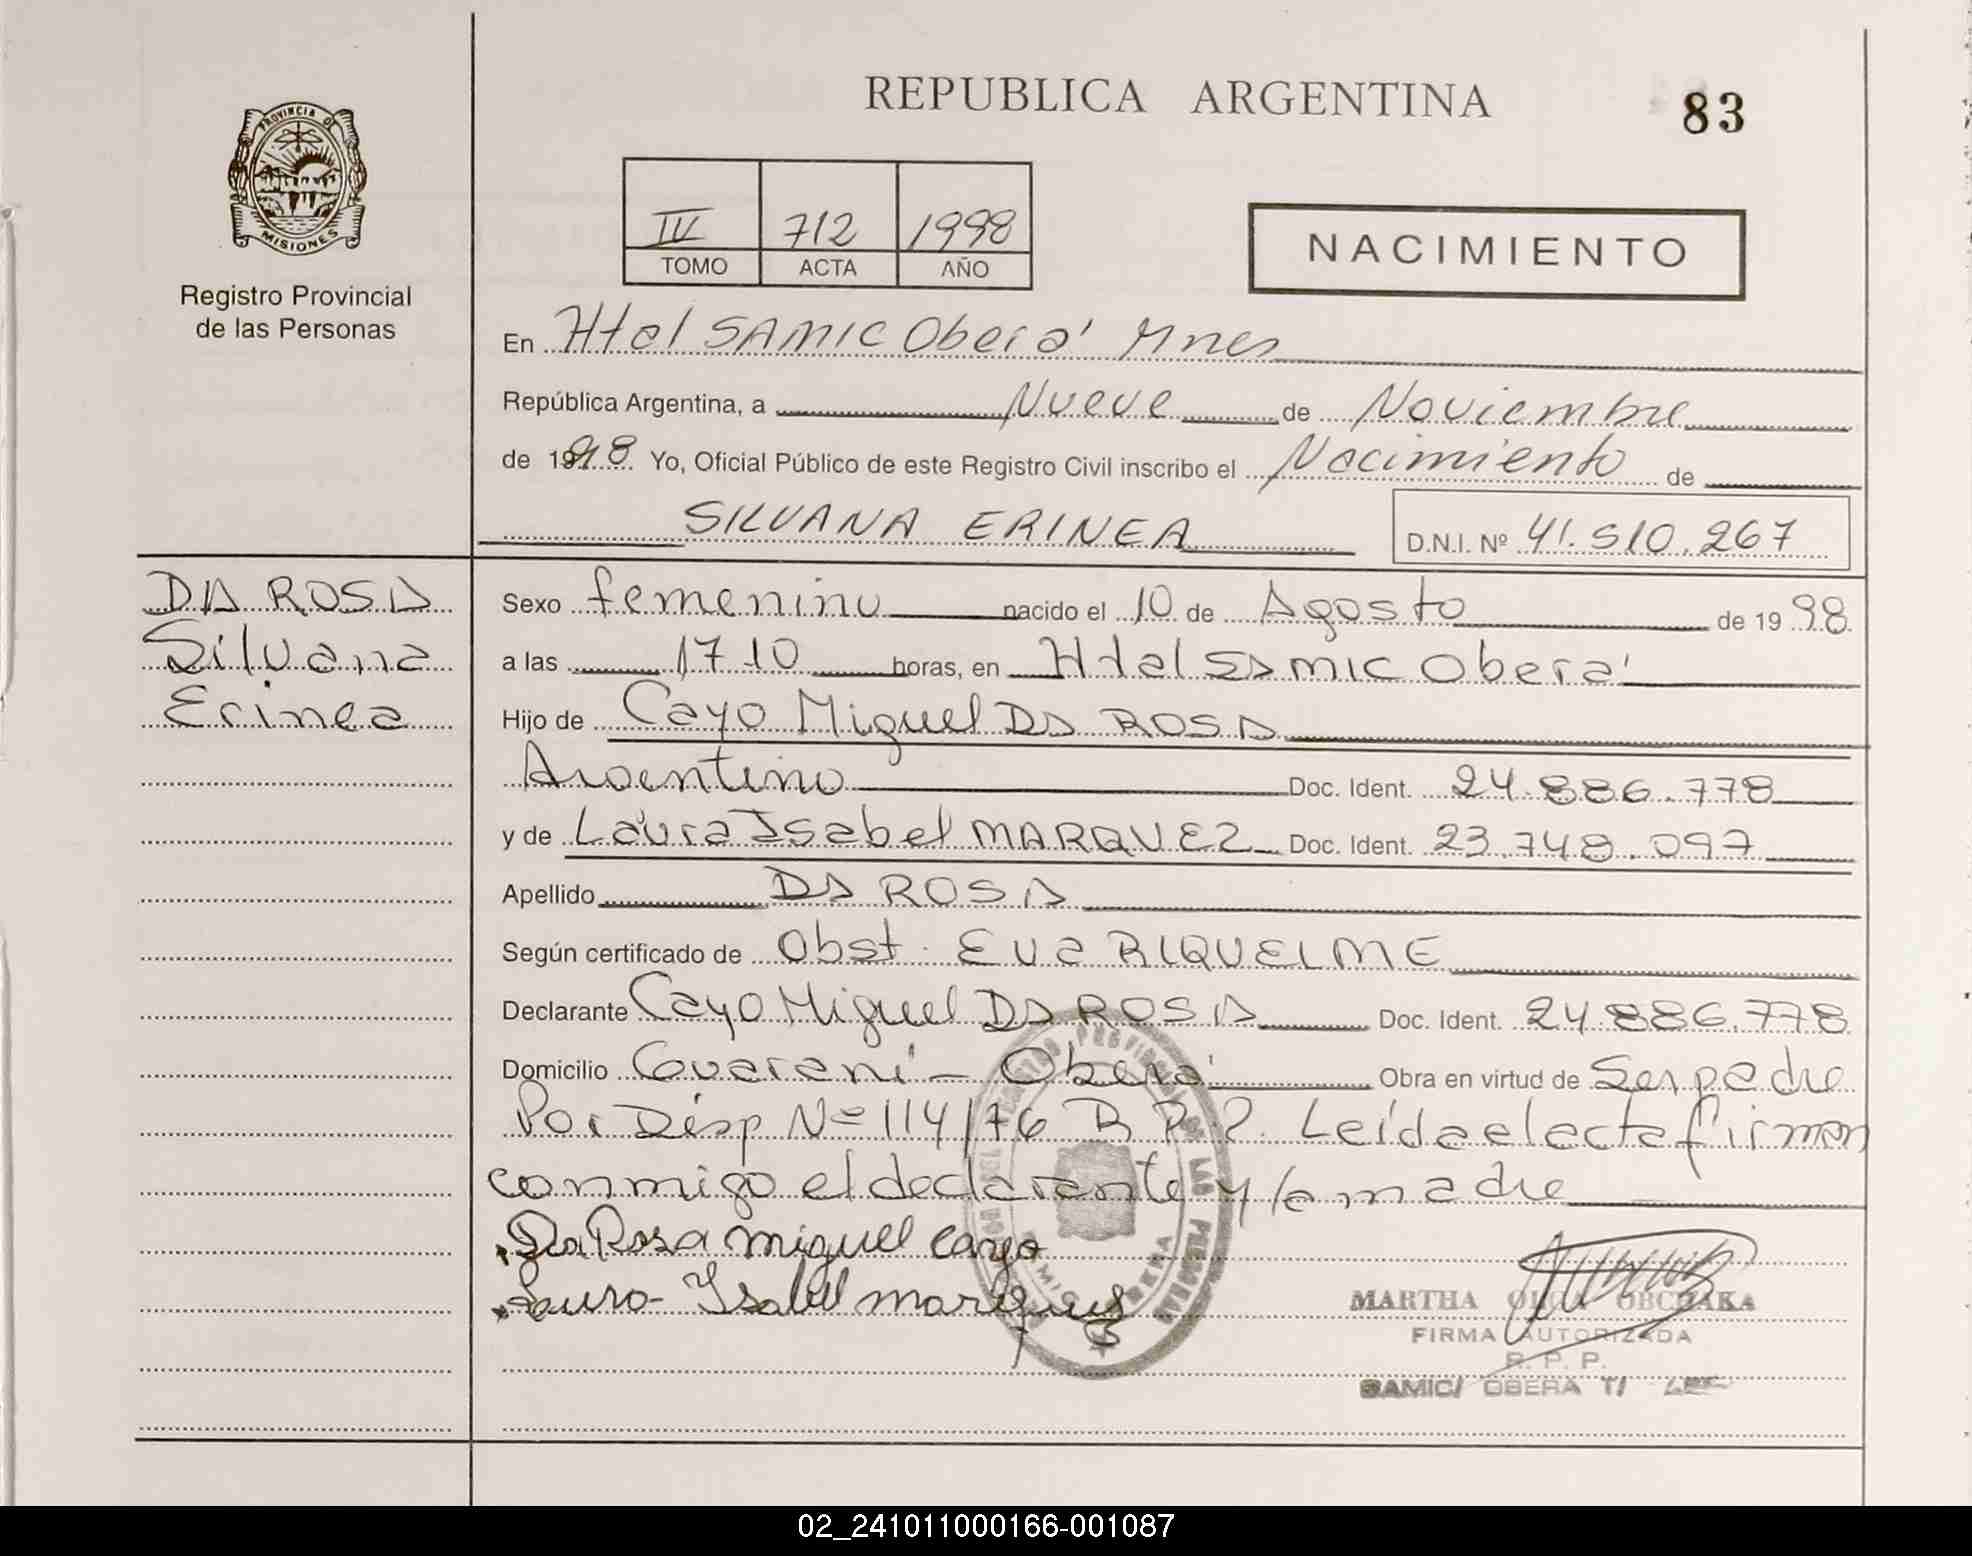 REPUBLICA ARGENTINA
83
PROVINCIA DE
MISIONES
Registro Provincial
de las Personas
IV 712 1998
TOMO ACTA AÑO
NACIMIENTO
En Htal SAMIC Oberá Mnes
República Argentina, a Nueve de Noviembre
de 1998 Yo, Oficial Público de este Registro Civil inscribo el Nacimiento de
SILVANA ERINEA D.N.I. Nº 41.510.267
DA ROSA
Silvana
Erinea
Sexo femenino nacido el 10 de Agosto de 1998
a las 1710 horas, en Htal SAMIC Oberá
Hijo de Cayo Miguel DA ROSA
Argentino Doc. Ident. 24.886.778
y de Laura Isabel MARQUEZ Doc. Ident. 23.748.097
Apellido DA ROSA
Según certificado de Obst. Eva RIQUELME
Declarante Cayo Miguel DA ROSA Doc. Ident. 24.886.778
Domicilio Guaraní - Oberá Obra en virtud de Ser padre
Por Disp Nº 114/76 R.P.P. Leída el acta firman
conmigo el declarante y la madre
Da Rosa miguel cayo
Laura Isabel marquez
MARTHA OLGA OBCHAKA
FIRMA AUTORIZADA
R. P. P.
SAMIC/ OBERA
02_241011000166-001087